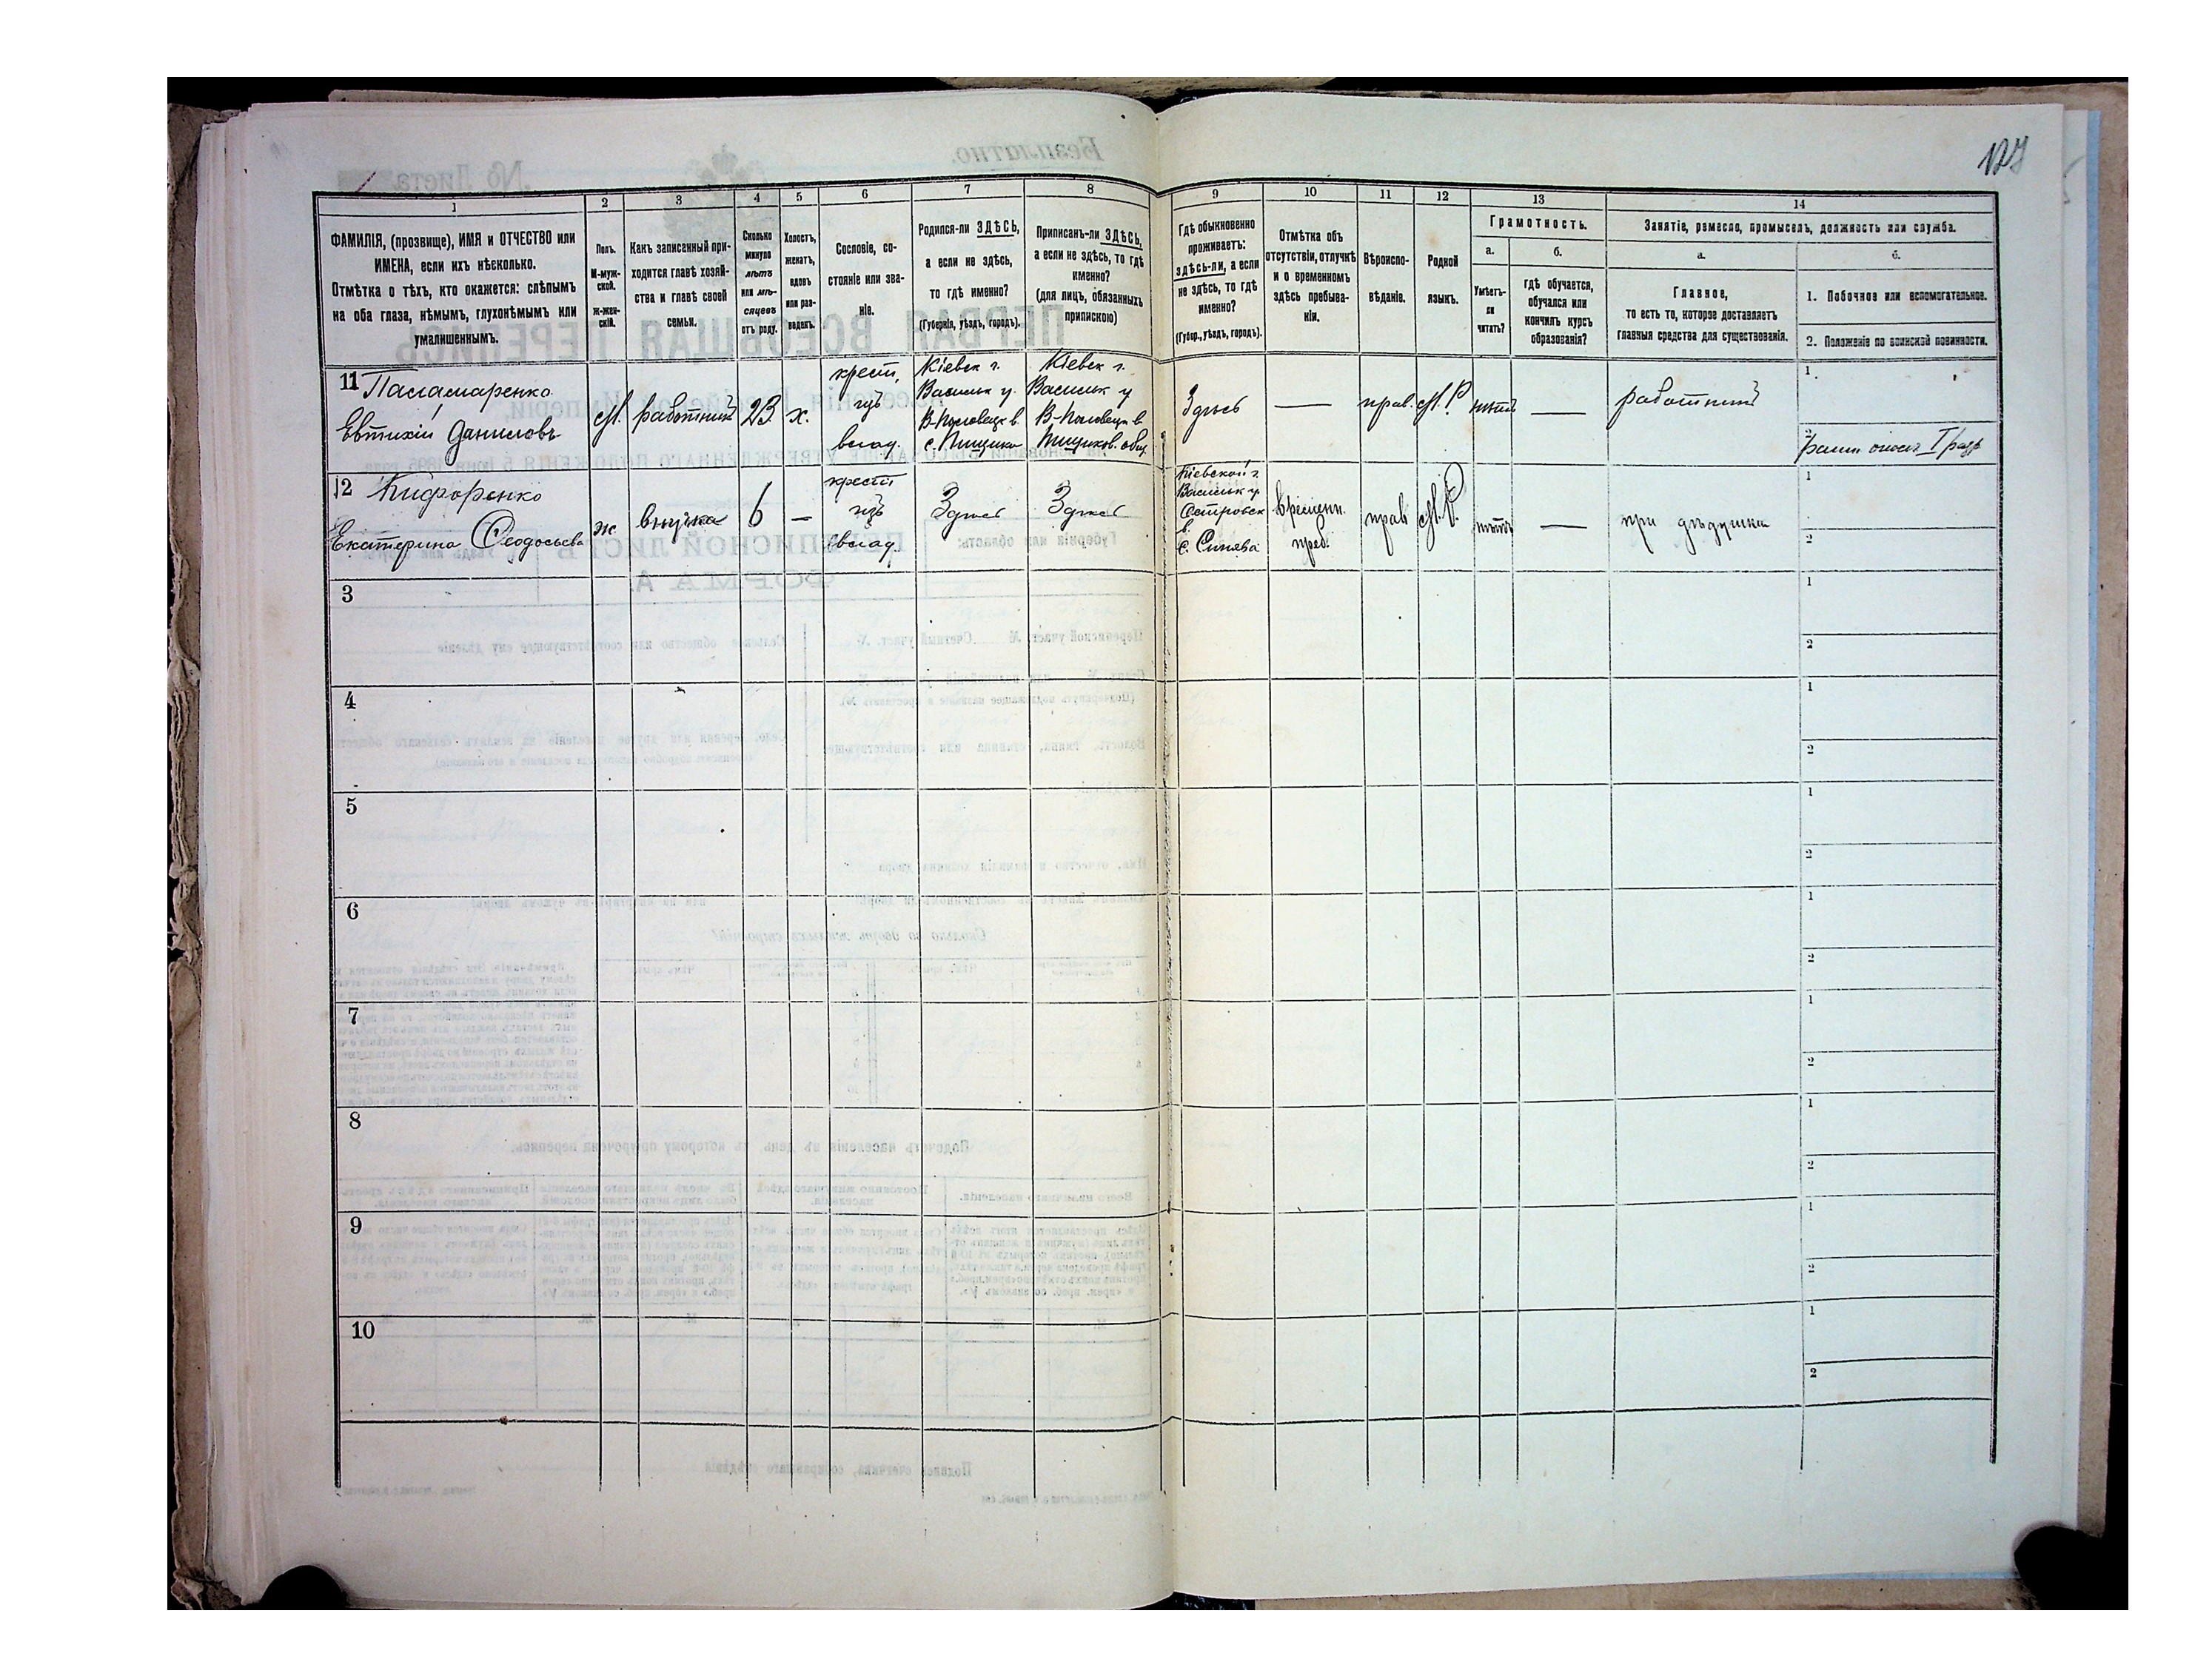 127
1 2 3 4 5 6 7 8 9 10 11 12 13 14
ФАМИЛІЯ, (прозвище), ИМЯ и ОТЧЕСТВО или
ИМЕНА, если ихъ нѣсколько.
Отмѣтка о тѣхъ, кто окажется: слѣпымъ
на оба глаза, нѣмымъ, глухонѣмымъ или
умалишеннымъ.
Полъ.
М-муж-
ской.
Ж-жен-
скій.
Какъ записанный при-
ходится главѣ хозяй-
ства и главѣ своей
семьи.
Сколько
минуло
лѣтъ
или мѣ-
сяцевъ
отъ роду.
Холостъ,
женатъ,
вдовъ
или раз-
веденъ.
Сословіе, со-
стояніе или зва-
ніе.
Родился-ли ЗДѢСЬ,
а если не здѣсь,
то гдѣ именно?
(Губернія, уѣздъ, городъ).
Приписанъ-ли ЗДѢСЬ,
а если не здѣсь, то гдѣ
именно?
(для лицъ, обязанныхъ
припискою)
Гдѣ обыкновенно
проживаетъ:
здѣсь-ли, а если
не здѣсь, то гдѣ
именно?
(Губер., уѣздъ, городъ).
Отмѣтка объ
отсутствіи, отлучкѣ
и о временномъ
здѣсь пребыва-
ніи.
Вѣроиспо-
вѣданіе.
Родной
языкъ.
Грамотность.
а.
Умѣетъ-
ли
читать?
б.
гдѣ обучается,
обучался или
кончилъ курсъ
образованія?
Занятіе, ремесло, промыселъ, должность или служба.
а.
Главное,
то есть то, которое доставляетъ
главныя средства для существованія.
б.
1. Побочное или вспомогательное.
2. Положеніе по воинской повинности.
11 Паламаренко
Евтихій Даниловъ
М. работникъ 23 х.
крест.
изъ
влад.
Кіевск г.
Васильк у.
В-Половецк в.
с. Пищики
Кіевск г.
Васильк у
В-Половецк в
Пищиков. общ.
Здѣсь — прав. М.Р. нѣтъ — работникъ
1
2
12 Никифоренко
Екатерина Ѳеодосьева
ж внучка 6 —
крест
изъ
влад.
Здѣсь Здѣсь
Кіевской г.
Васильк у
Островск
в.
с. Синява
времен.
преб.
прав М.Р. нѣтъ — при дѣдушкѣ
1
2
3
1
2
4
1
2
5
1
2
6
1
2
7
1
2
8
1
2
9
1
2
10
1
2